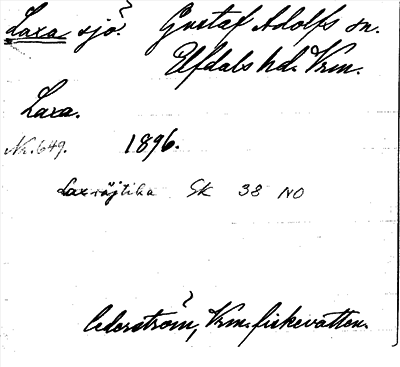 Laxa sjö. Gustaf Adolfs sn.
Elfdals hd. Vrm.
Laxa.
Nr. 649. 1896.
SK 38 NO
Cederström, Vrm. fiskevatten.